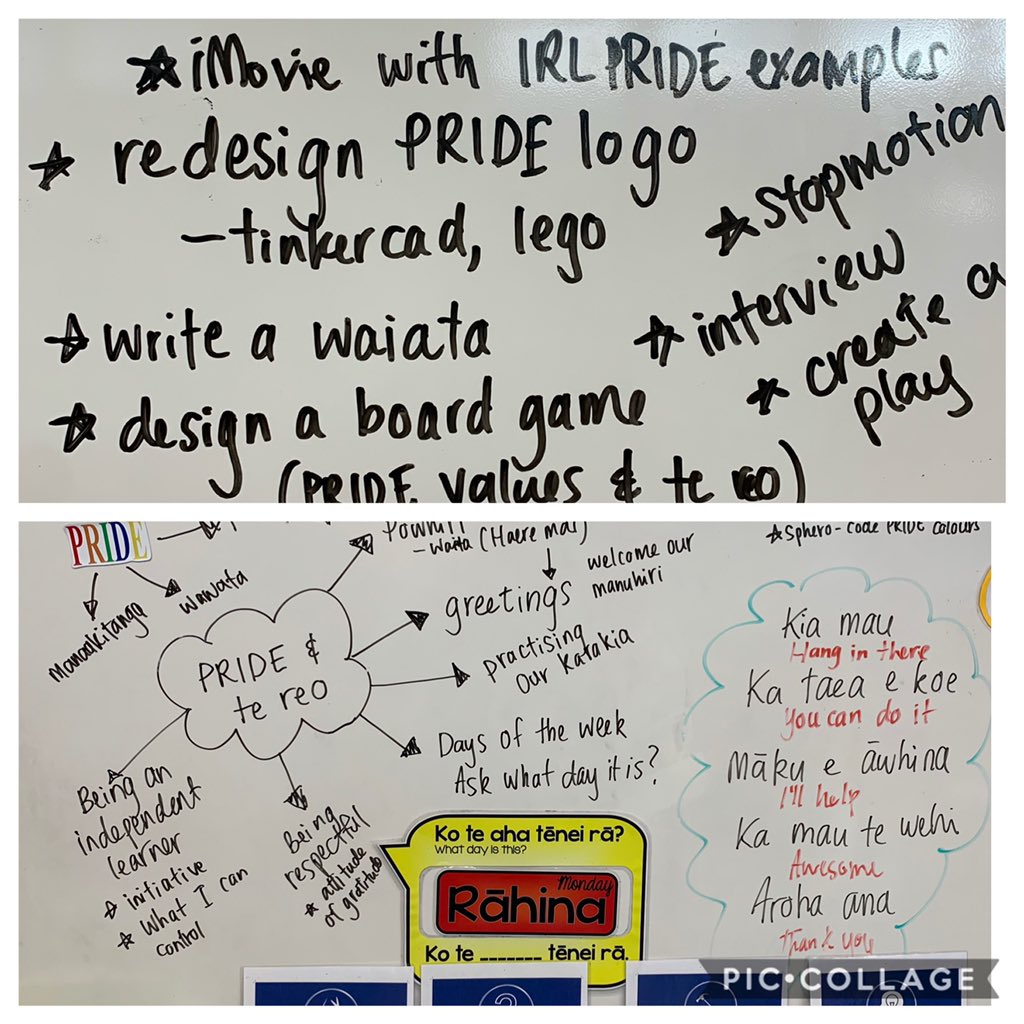 ★ iMovie with IRL PRIDE examples
★ redesign PRIDE logo
- tinkercad, lego
★ stopmotion
★ write a waiata
★ interview
★ create a
play
★ design a board game
(PRIDE values & te reo)
PRIDE
Manaakitanga
wawata
- Waiata (Haere mai)
greetings
welcome our
manuhiri
practising
our Karakia
PRIDE &
te reo
Days of the week
Ask what day it is?
Being an
independent
learner
★ initiative
★ What I can
control
Being
respectful
★ attitude
of gratitude
★ Sphero - Code PRIDE colours
Kia mau
Hang in there
Ka taea e koe
You can do it
Māku e āwhina
I'll help
Ka mau te wehi
Awesome
Aroha ana
Thank you
Ko te aha tēnei rā?
What day is this?
Monday
Rāhina
Ko te _______ tēnei rā.
PIC•COLLAGE